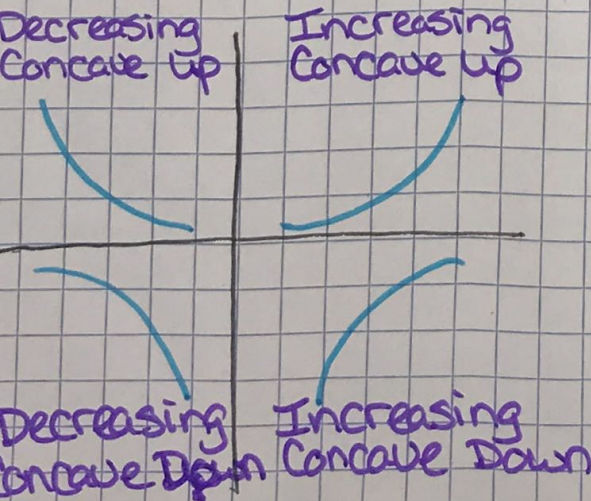 Decreasing
Concave up
Increasing
Concave up
Decreasing
Concave Down
Increasing
Concave Down